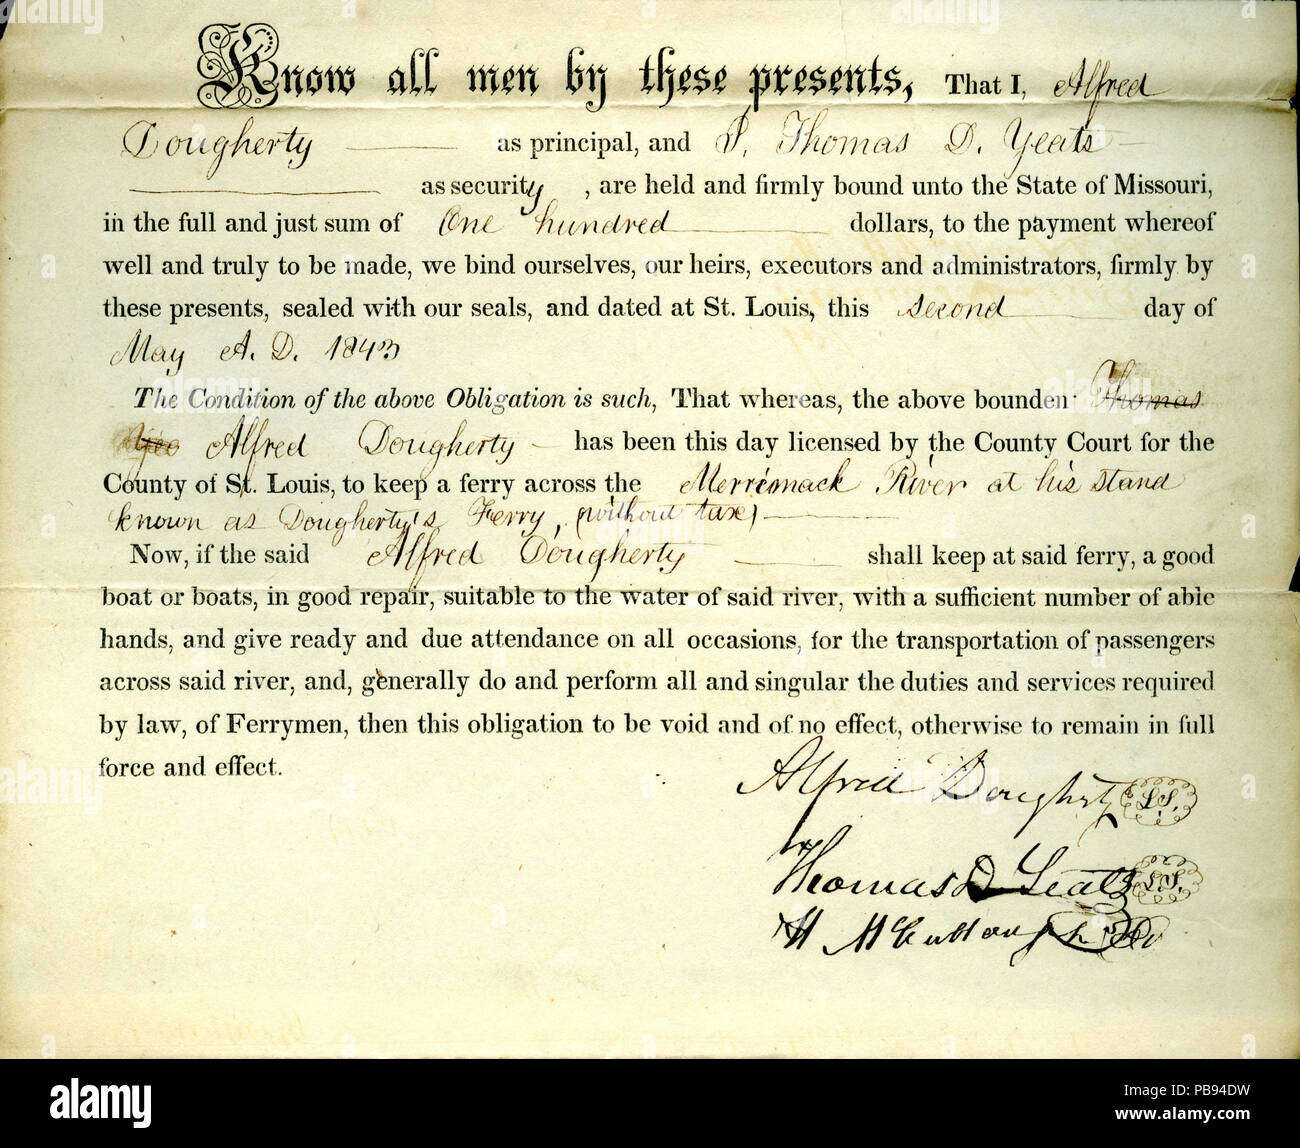 Know all men by these presents, That I, Alfred
Dougherty as principal, and I, Thomas D. Yeats
as security, are held and firmly bound unto the State of Missouri,
in the full and just sum of One hundred dollars, to the payment whereof
well and truly to be made, we bind ourselves, our heirs, executors and administrators, firmly by
these presents, sealed with our seals, and dated at St. Louis, this second day of
May A. D. 1843
The Condition of the above Obligation is such, That whereas, the above bounden Thomas
Yea Alfred Dougherty has been this day licensed by the County Court for the
County of St. Louis, to keep a ferry across the Merrimack River at his stand
known as Dougherty's Ferry, (without tax)
Now, if the said Alfred Dougherty shall keep at said ferry, a good
boat or boats, in good repair, suitable to the water of said river, with a sufficient number of able
hands, and give ready and due attendance on all occasions, for the transportation of passengers
across said river, and, generally do and perform all and singular the duties and services required
by law, of Ferrymen, then this obligation to be void and of no effect, otherwise to remain in full
force and effect.
Alfred Dougherty L.S.
Thomas D Yeats L.S.
alamy
Image ID: PB94DW
www.alamy.com